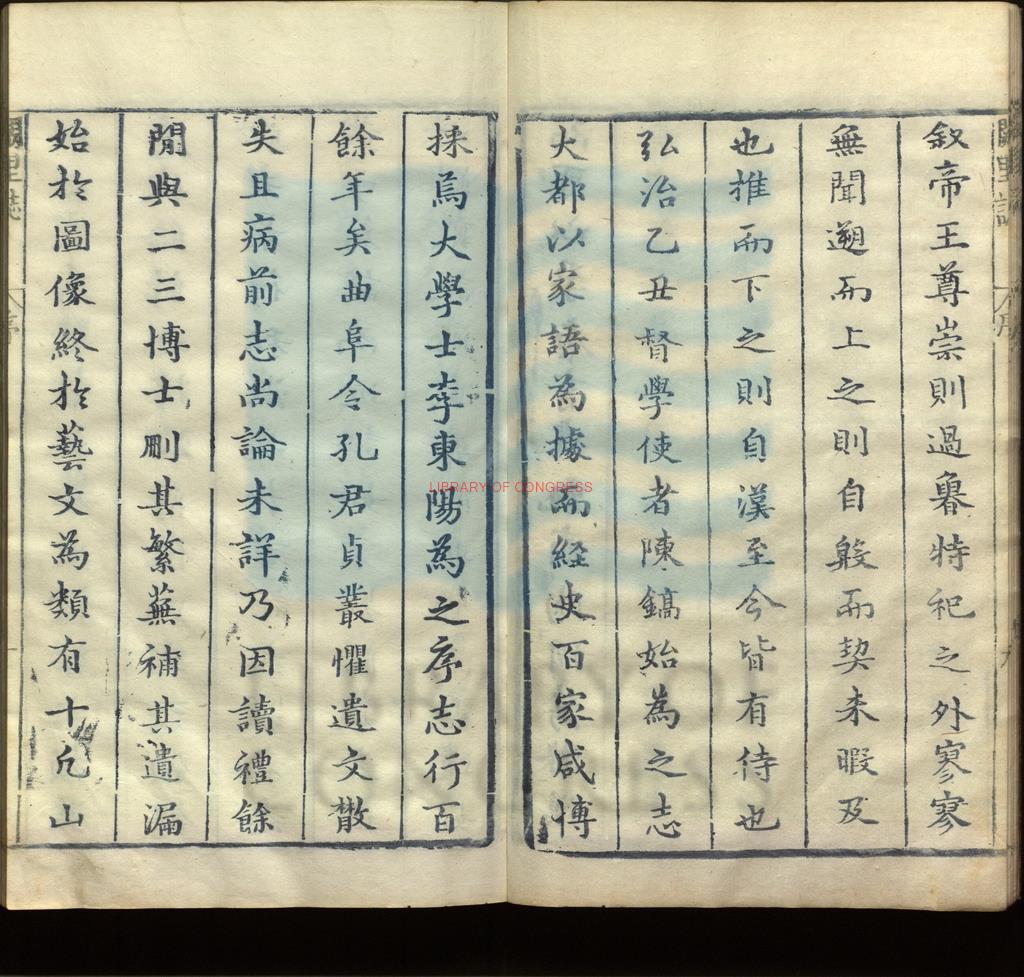 叙帝王尊崇則過魯特祀之外寥寥
無聞遡而上之則自殷而契未暇及
也推而下之則自漢至今皆有待也
弘治乙丑督學使者陳鎬始為之志
大都以家語為據而經史百家咸博
採焉大學士李東陽為之序志行百
餘年矣曲阜令孔君貞叢懼遺文散
失且病前志尚論未詳乃因讀禮餘
閒與二三博士刪其繁蕪補其遺漏
始於圖像終於藝文為類有十凡山
闕里誌
序
LIBRARY OF CONGRESS